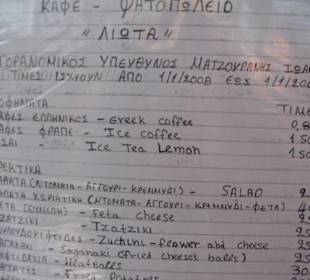 ΚΑΦΕ - ΨΗΤΟΠΩΛΕΙΟ
" ΛΙΩΤΑ "
ΓΟΡΑΝΟΜΙΚΟΣ ΥΠΕΥΘΥΝΟΣ ΜΑΤΖΟΥΡΑΝΗΣ ΙΩΑ
ΤΙΜΕΣ ΙΣΧΥΟΥΝ ΑΠΟ 1/1/2008 ΕΩΣ 1/1/200
ΟΦΗΜΑΤΑ ΤΙΜΕ
ΑΦΕΣ ΕΛΛΗΝΙΚΟΣ - Greek coffee 0,8
ΑΦΕΣ ΦΡΑΠΕ - Ice coffee 1.50
ΣΑΙ - Ice Tea Lemon 1.50
ΡΕΚΤΙΚΑ
ΛΑΤΑ (ΝΤΟΜΑΤΑ-ΑΓΓΟΥΡΙ-ΚΡΕΜΜΥΔΙ) - SALAD
ΛΑΤΑ ΧΩΡΙΑΤΙΚΗ (ΝΤΟΜΑΤΑ-ΑΓΓΟΥΡΙ-ΚΡΕΜΜΥΔΙ-ΦΕΤΑ)
ΕΤΑ - Feta cheese
ΤΖΑΤΖΙΚΙ - TZATZIKI
- Zuchini-flower abd cheese
- Saganaki (fried cheeses balls)
- Meatballs
- Fried